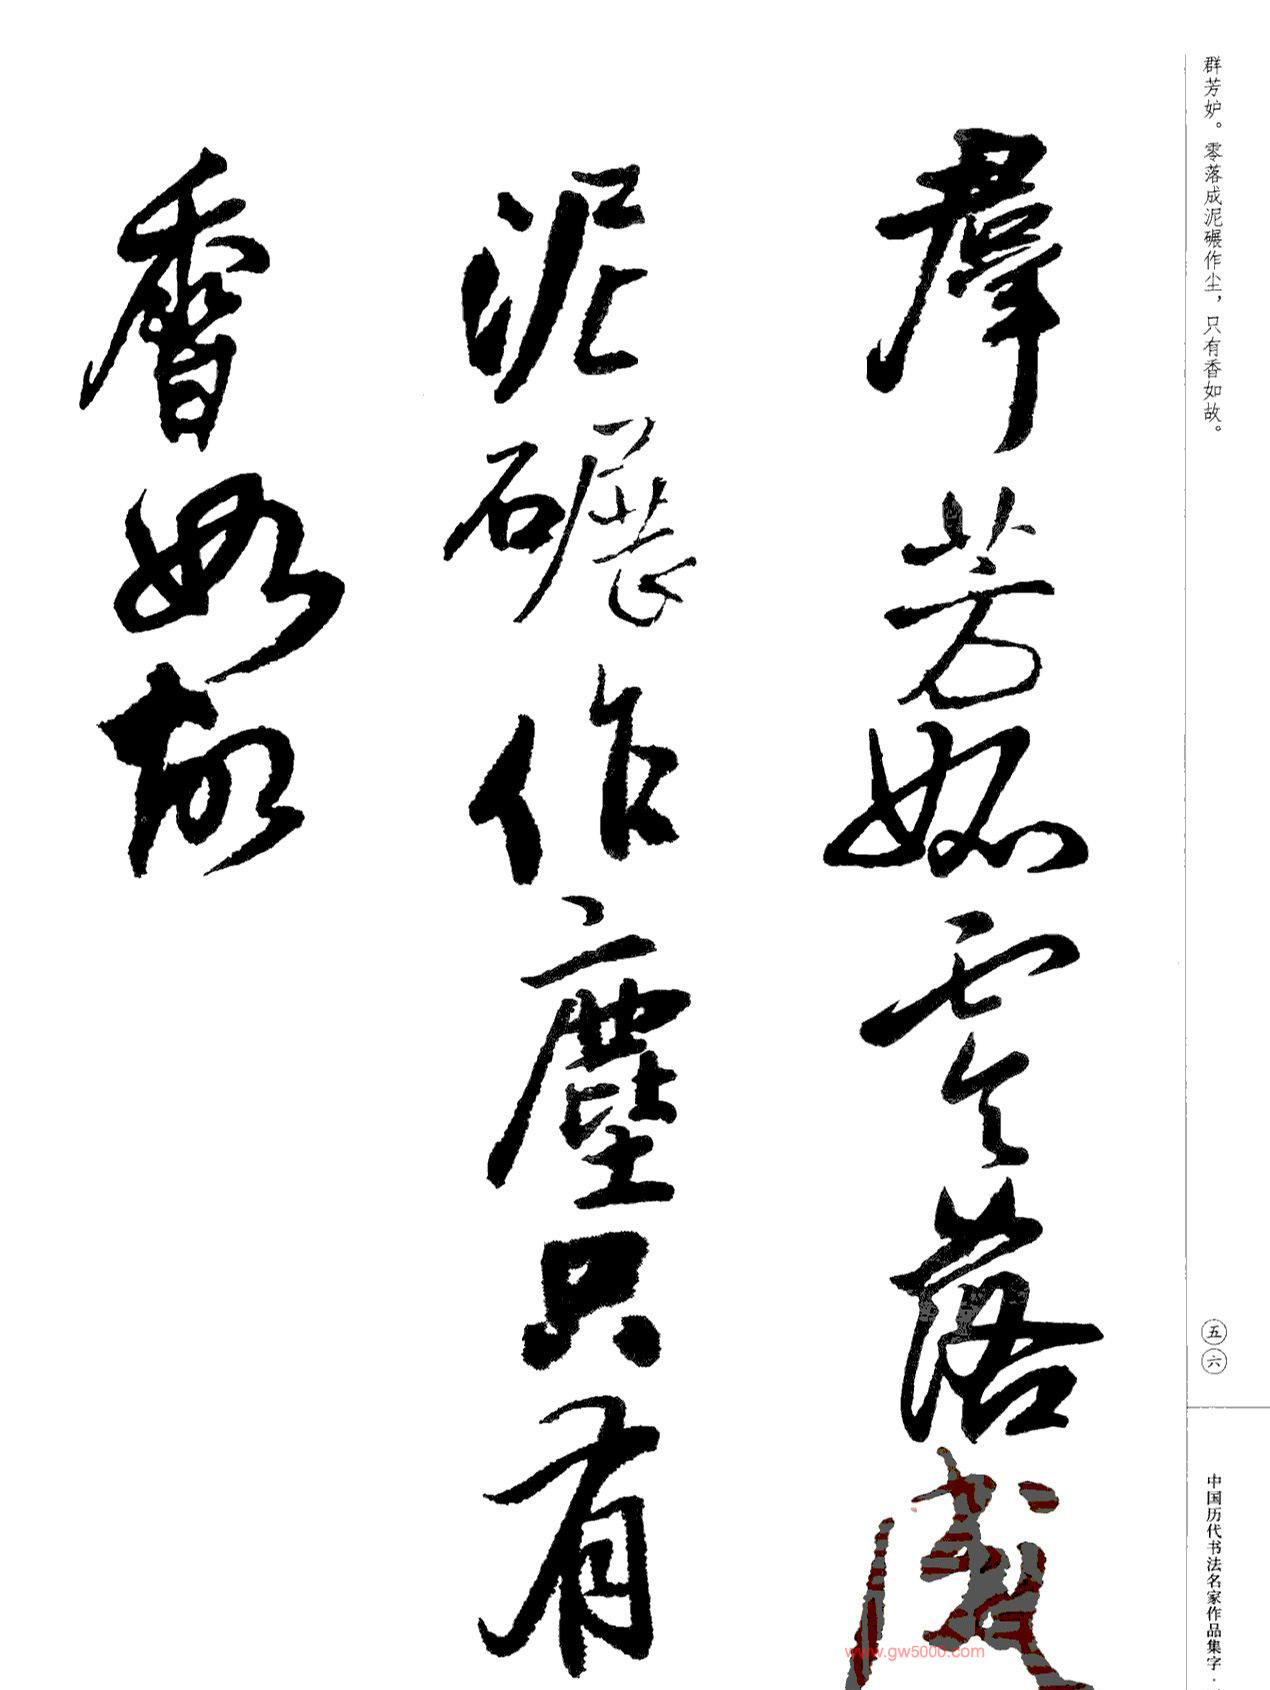 群芳妒。零落成泥碾作尘，只有香如故。
羣芳妬零落成
泥碾作塵只有
香如故
五六
中国历代书法名家作品集字·
www.gw5000.com